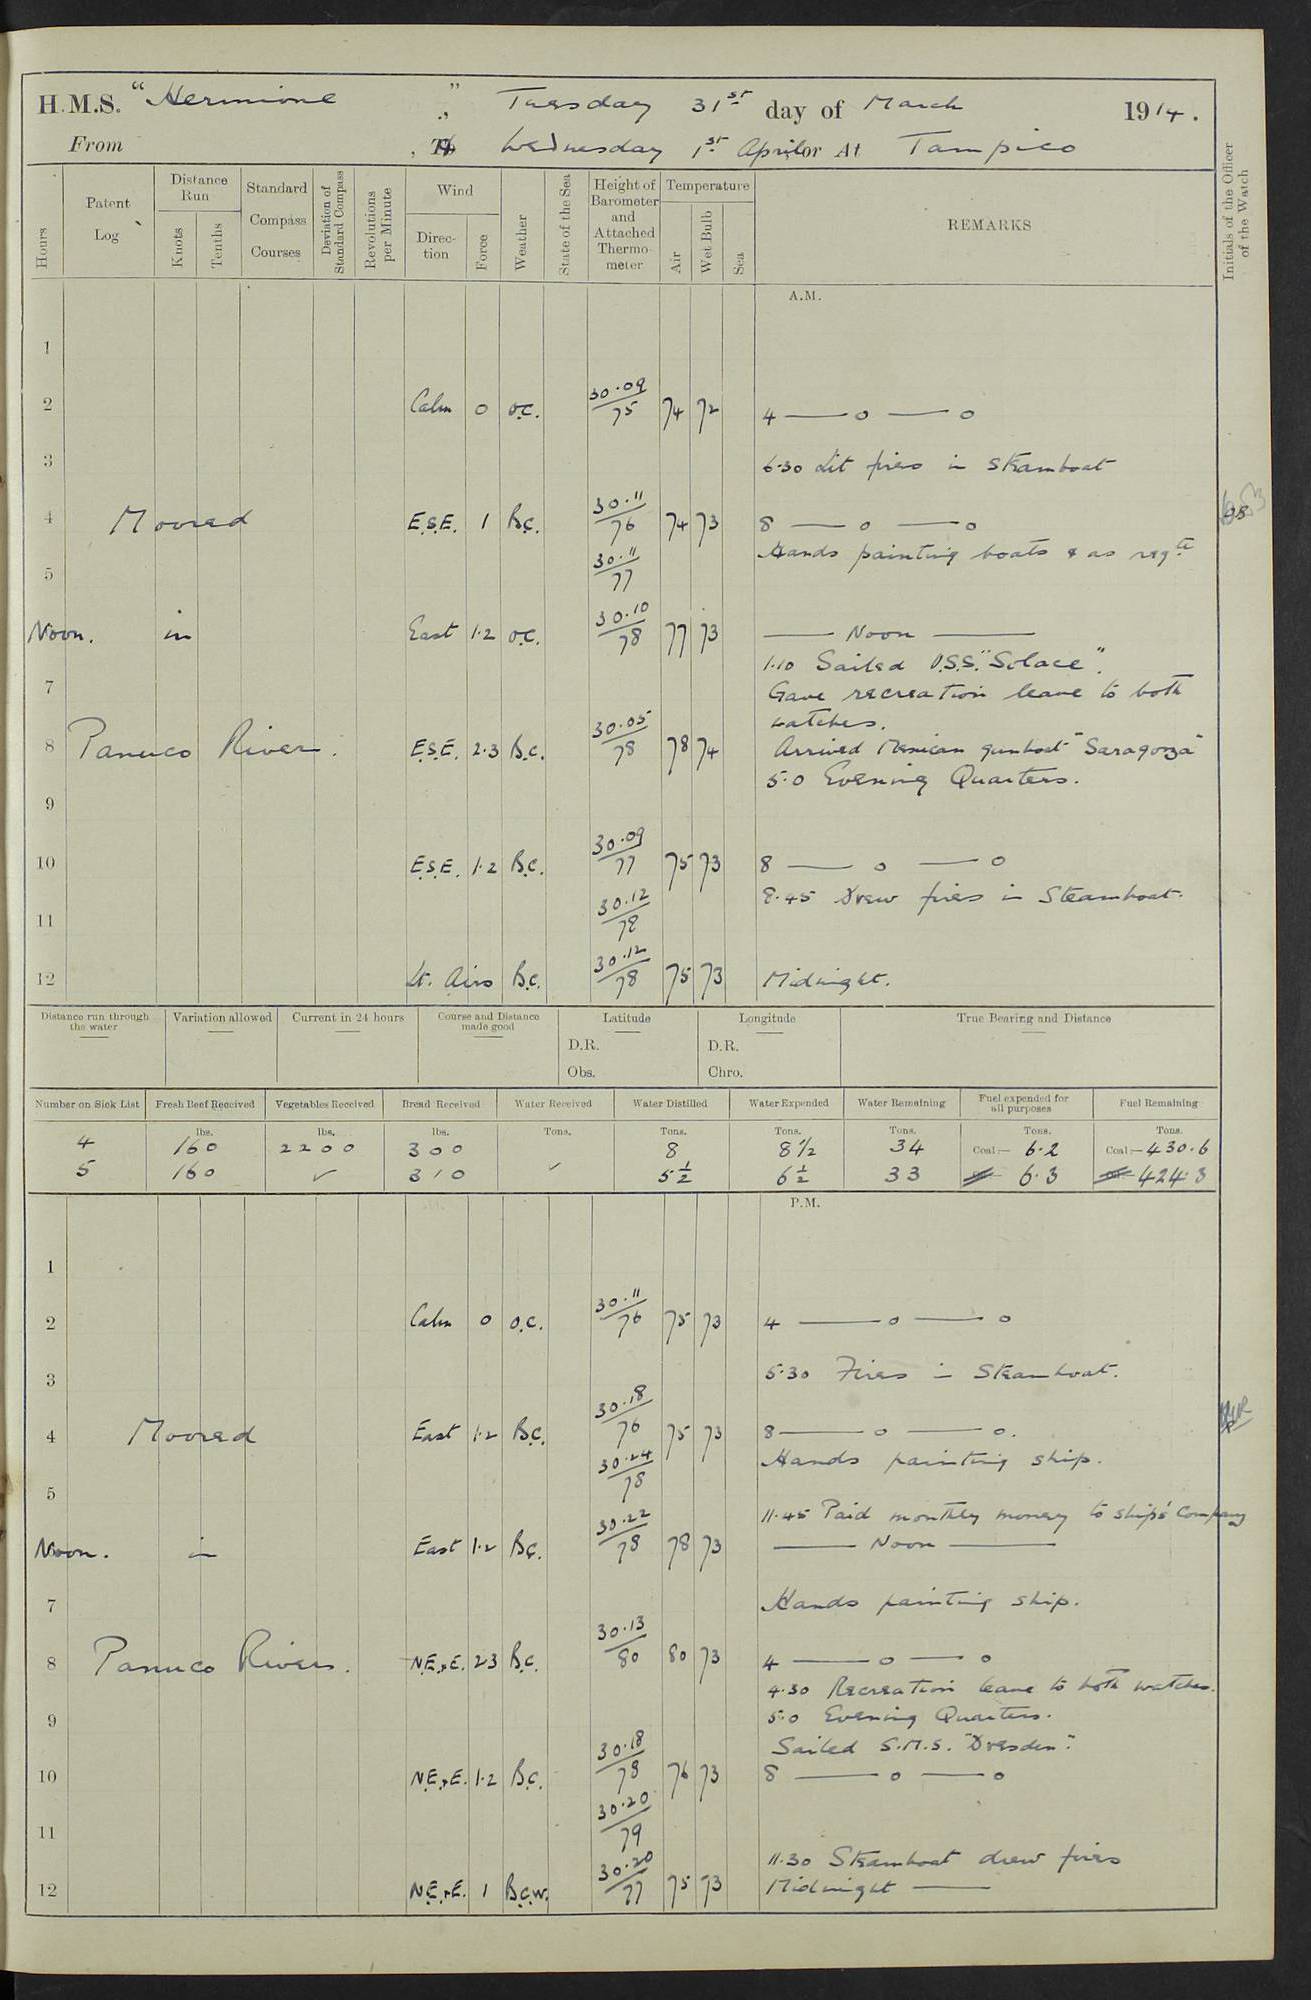 H.M.S. "Hermione" Tuesday 31st day of March 1914.
From , To Wednesday 1st April or At Tampico
Hours
Patent Log
Distance Run
Knots
Tenths
Standard Compass Courses
Deviation of Standard Compass
Revolutions per Minute
Wind
Direction
Force
Weather
State of the Sea
Height of Barometer and Attached Thermometer
Temperature
Air
Wet Bulb
Sea
REMARKS
Initials of the Officer of the Watch
A.M.
1
2 Calm 0 o.c. 30.09/75 74 72 4 — o — o
3 6.30 Lit fires in Steamboat
4 Moored E.S.E. 1 B.c. 30.11/76 74 73 8 — o — o
Hands painting boats & as reqte
5 30.11/77
Noon. in East 1.2 o.c. 30.10/78 77 73 — Noon —
1.10 Sailed U.S.S. "Solace".
7 Gave recreation leave to both
watches.
8 Panuco River. E.S.E. 2.3 B.c. 30.05/78 78 74 Arrived Mexican gunboat "Saragoza"
5.0 Evening Quarters.
9
10 E.S.E. 1.2 B.c. 30.09/77 75 73 8 — o — o
8.45 Drew fires in Steamboat.
11 30.12/78
12 Lt. Airs B.c. 30.12/78 75 73 Midnight.
Distance run through the water
Variation allowed
Current in 24 hours
Course and Distance made good
Latitude
D.R.
Obs.
Longitude
D.R.
Chro.
True Bearing and Distance
Number on Sick List Fresh Beef Received Vegetables Received Bread Received Water Received Water Distilled Water Expended Water Remaining Fuel expended for all purposes Fuel Remaining
lbs. lbs. lbs. Tons. Tons. Tons. Tons. Tons. Tons.
4 160 2200 300 8 8 1/2 34 Coal:— 6.2 Coal:— 430.6
5 160 ✓ 310 ✓ 5 1/2 6 1/2 33 6.3 424.3
P.M.
1
2 Calm 0 o.c. 30.11/76 75 73 4 — o — o
3 5.30 Fires in Steamboat.
4 Moored East 1.2 B.c. 30.18/76 75 73 8 — o — o.
Hands painting ship.
5 30.24/78
11.45 Paid monthly money to ship's Company
Noon. in East 1.2 B.c. 30.22/78 78 73 — Noon —
7 Hands painting ship.
8 Panuco River. N.E.xE. 2.3 B.c. 30.13/80 80 73 4 — o — o
4.30 Recreation leave to both watches.
9 5.0 Evening Quarters.
Sailed S.M.S. "Dresden".
10 N.E.xE. 1.2 B.c. 30.18/78 76 73 8 — o — o
11 30.20/79
11.30 Steamboat drew fires
12 N.E.xE. 1 B.c.w. 30.20/77 75 73 Midnight —